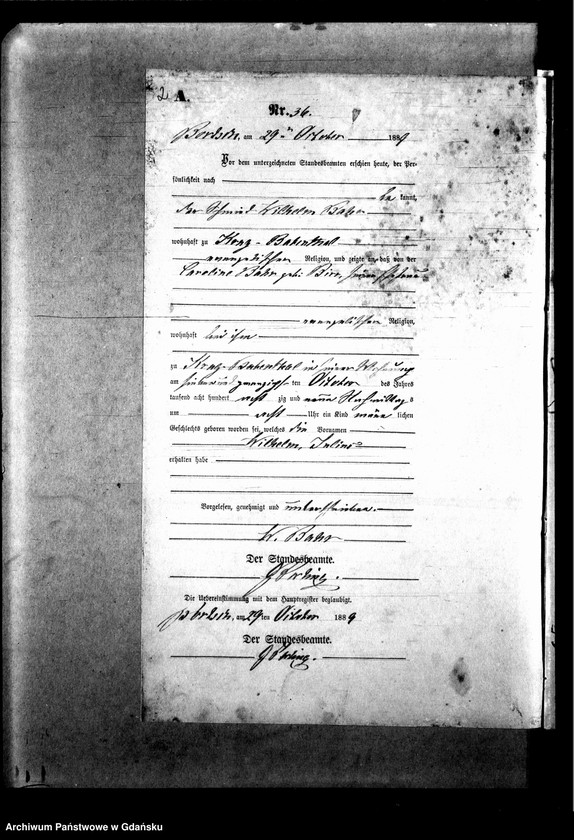 2 A.
Nr. 36.
am 29ten October 1889
Vor dem unterzeichneten Standesbeamten erschien heute, der Per-
sönlichkeit nach
be kannt,
der Schmied Wilhelm
wohnhaft zu
evangelischer Religion, und zeigte an, daß von der
Caroline geb.
evangelischer Religion,
wohnhaft bei ihm
zu in seiner Wohnung
am sieben und zwanzigsten October des Jahres
tausend acht hundert acht zig und neun Nachmittags
um acht Uhr ein Kind männ lichen
Geschlechts geboren worden sei, welches die Vornamen
Wilhelm, Julius
erhalten habe
Vorgelesen, genehmigt und unterschrieben.
W.
Der Standesbeamte.
Die Uebereinstimmung mit dem Hauptregister beglaubigt.
am 29ten October 1889
Der Standesbeamte.
Archiwum Państwowe w Gdańsku